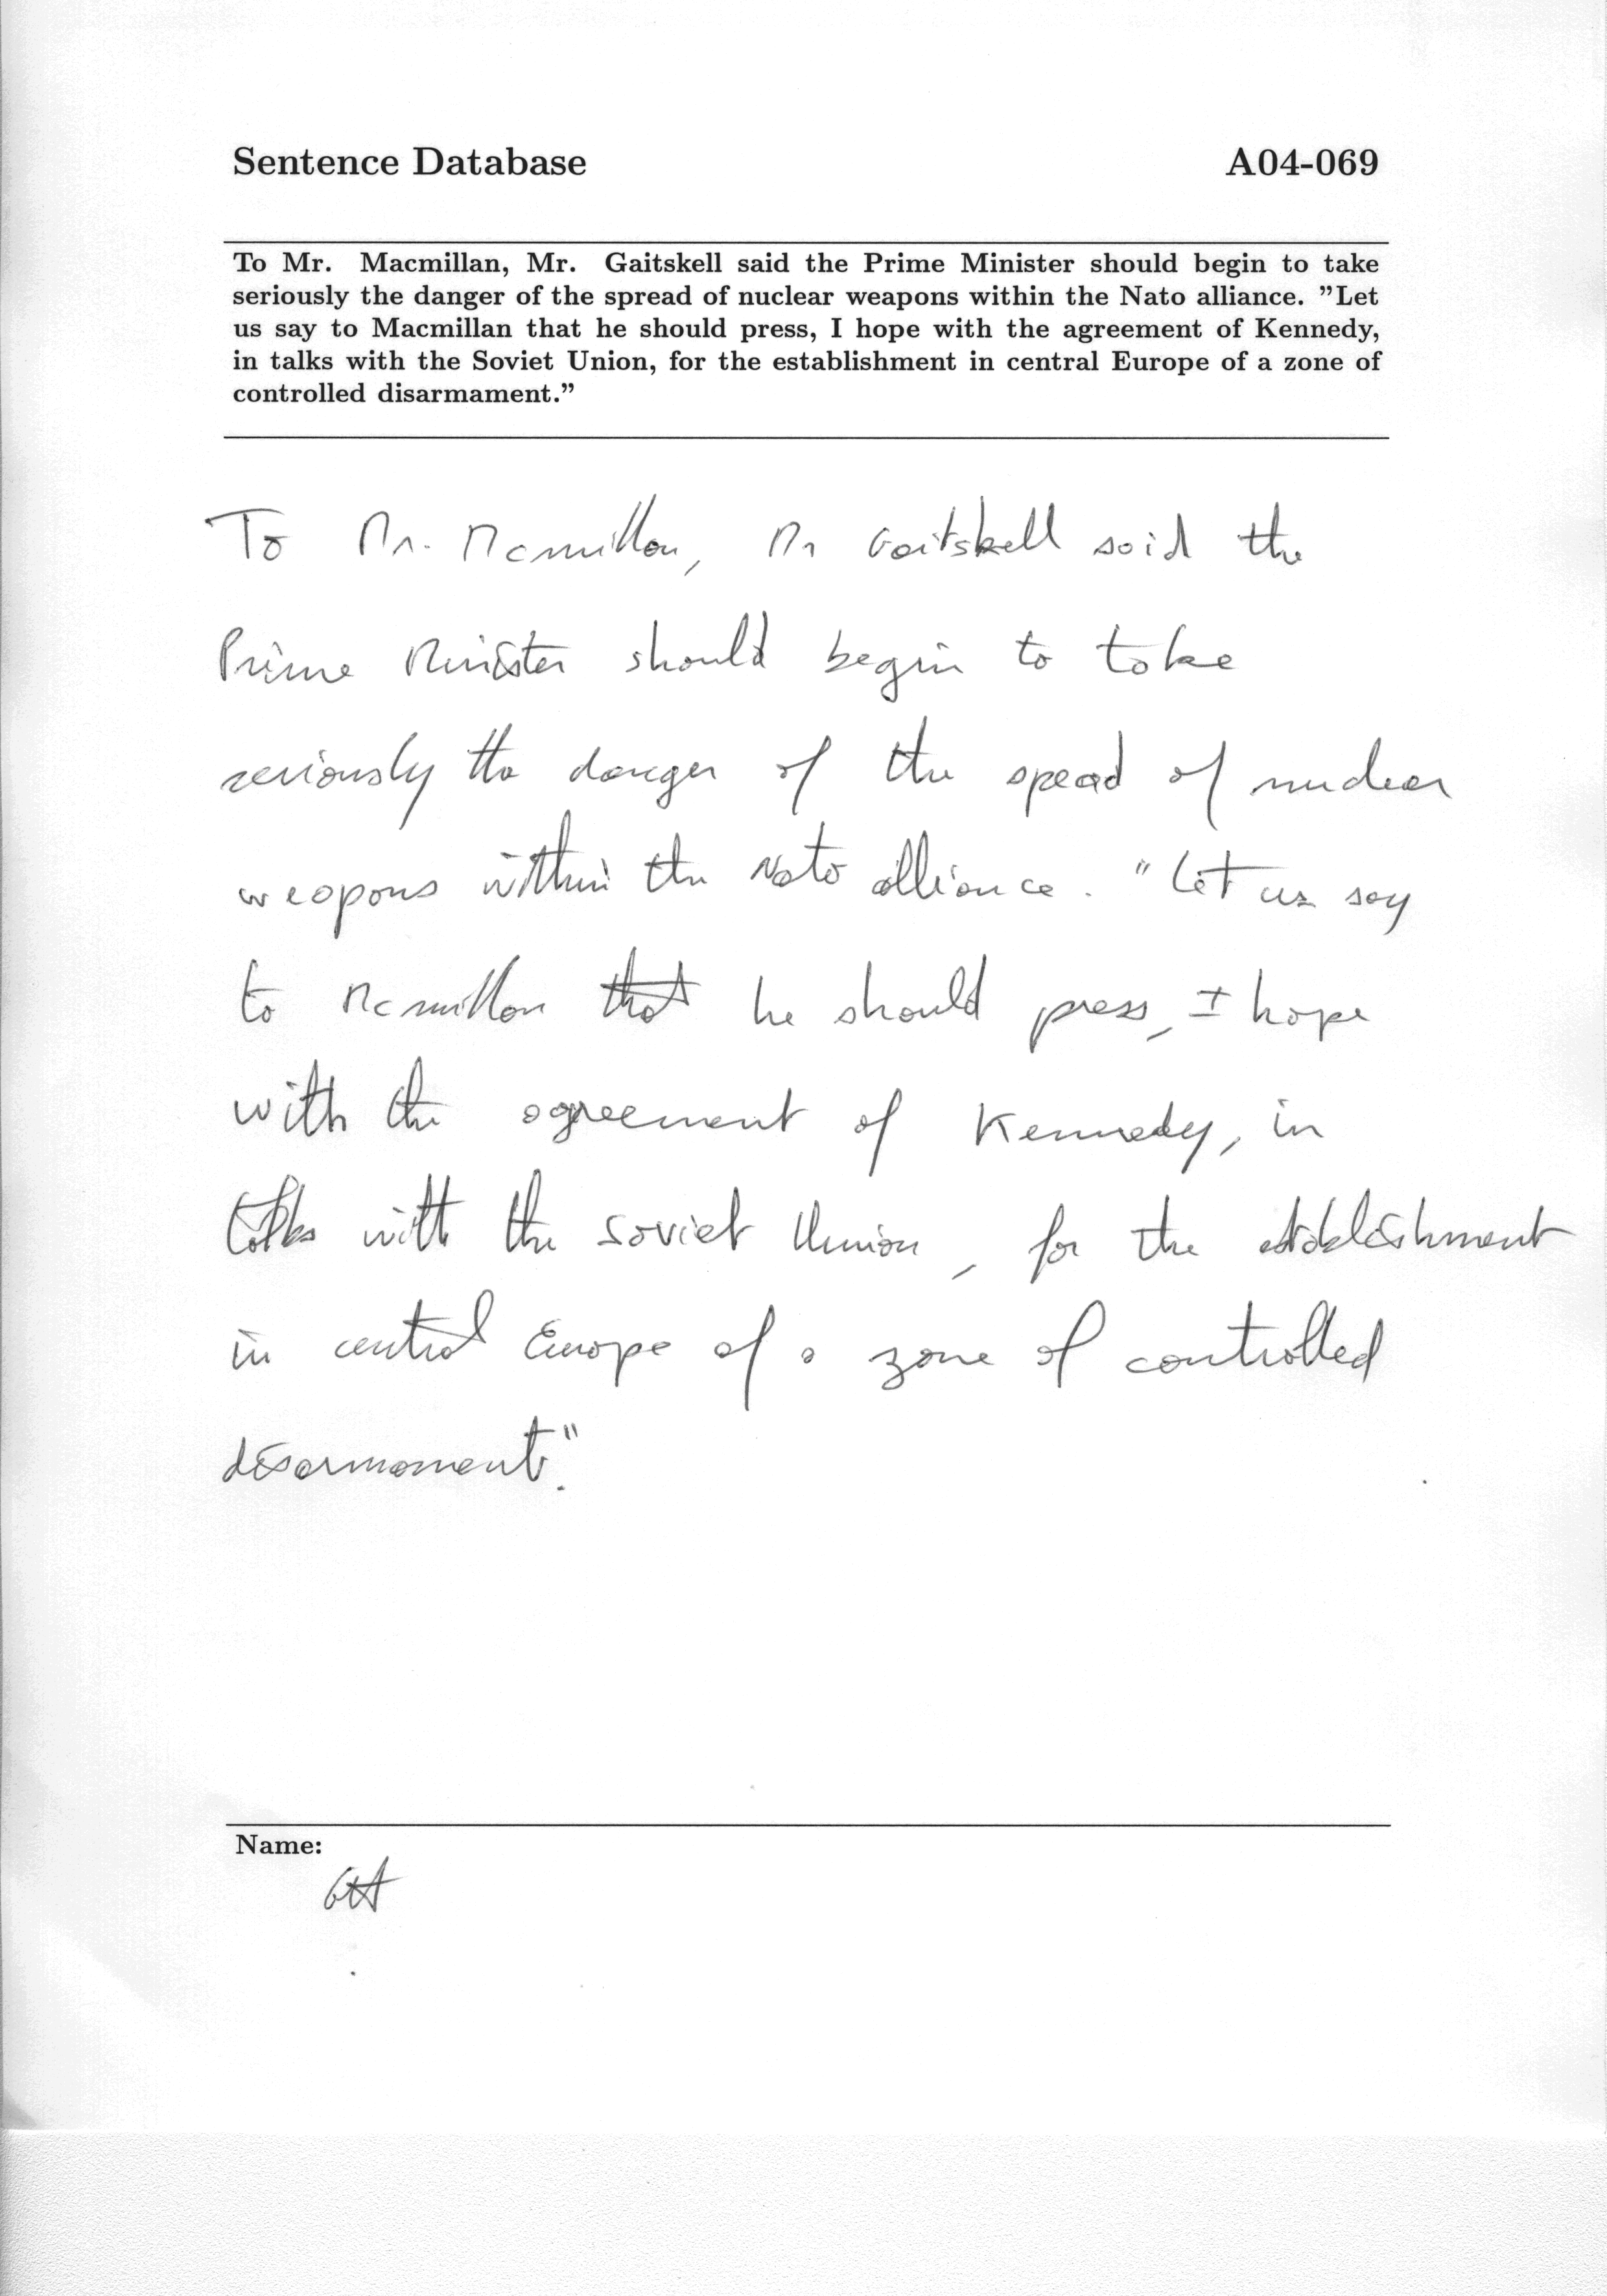 Sentence Database A04-069
To Mr. Macmillan, Mr. Gaitskell said the Prime Minister should begin to take
seriously the danger of the spread of nuclear weapons within the Nato alliance. "Let
us say to Macmillan that he should press, I hope with the agreement of Kennedy,
in talks with the Soviet Union, for the establishment in central Europe of a zone of
controlled disarmament."
To Mr. Mcmillan, Mr Gaitskell said the
Prime Minister should begin to take
seriously the danger of the spead of nuclear
weapons within the Nato alliance. "Let us say
to Mcmillan that he should press, I hope
with the agreement of Kennedy, in
talks with the Soviet Union, for the establishment
in central Europe of a zone of controlled
disarmament."
Name: